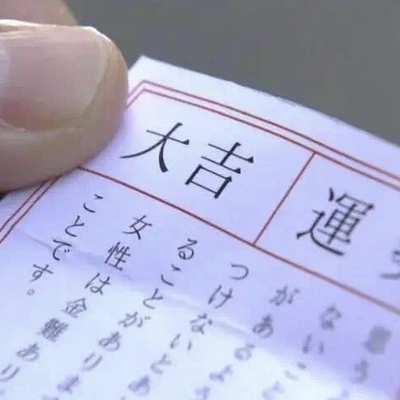 大吉
運
思う
ないこと
があるよう
つけないとあ
ることがありま
女性は金難あり
ことです。